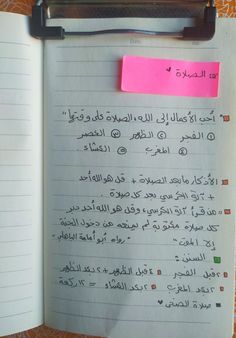 الصلاة
"أحب الأعمال إلى الله، الصلاة على وقتها"
① الفجر ② الظهر ③ العصر
④ المغرب ⑤ العشاء.
الأذكار ما بعد الصلاة + قل هو الله أحد
+ آية الكرسي بعد كل صلاة.
من قرأ آية الكرسي، وقل هو الله أحد دبر
كل صلاة مكتوبة لم يمنعه من دخول الجنة
إلا الموت" رواه أبو أمامة الباهلي"
السنن:
٢ قبل الفجر ٤ قبل الظهر + ٢ بعد الظهر
٢ بعد المغرب ٢ بعد العشاء = ١٢ ركعة
صلاة الضحى